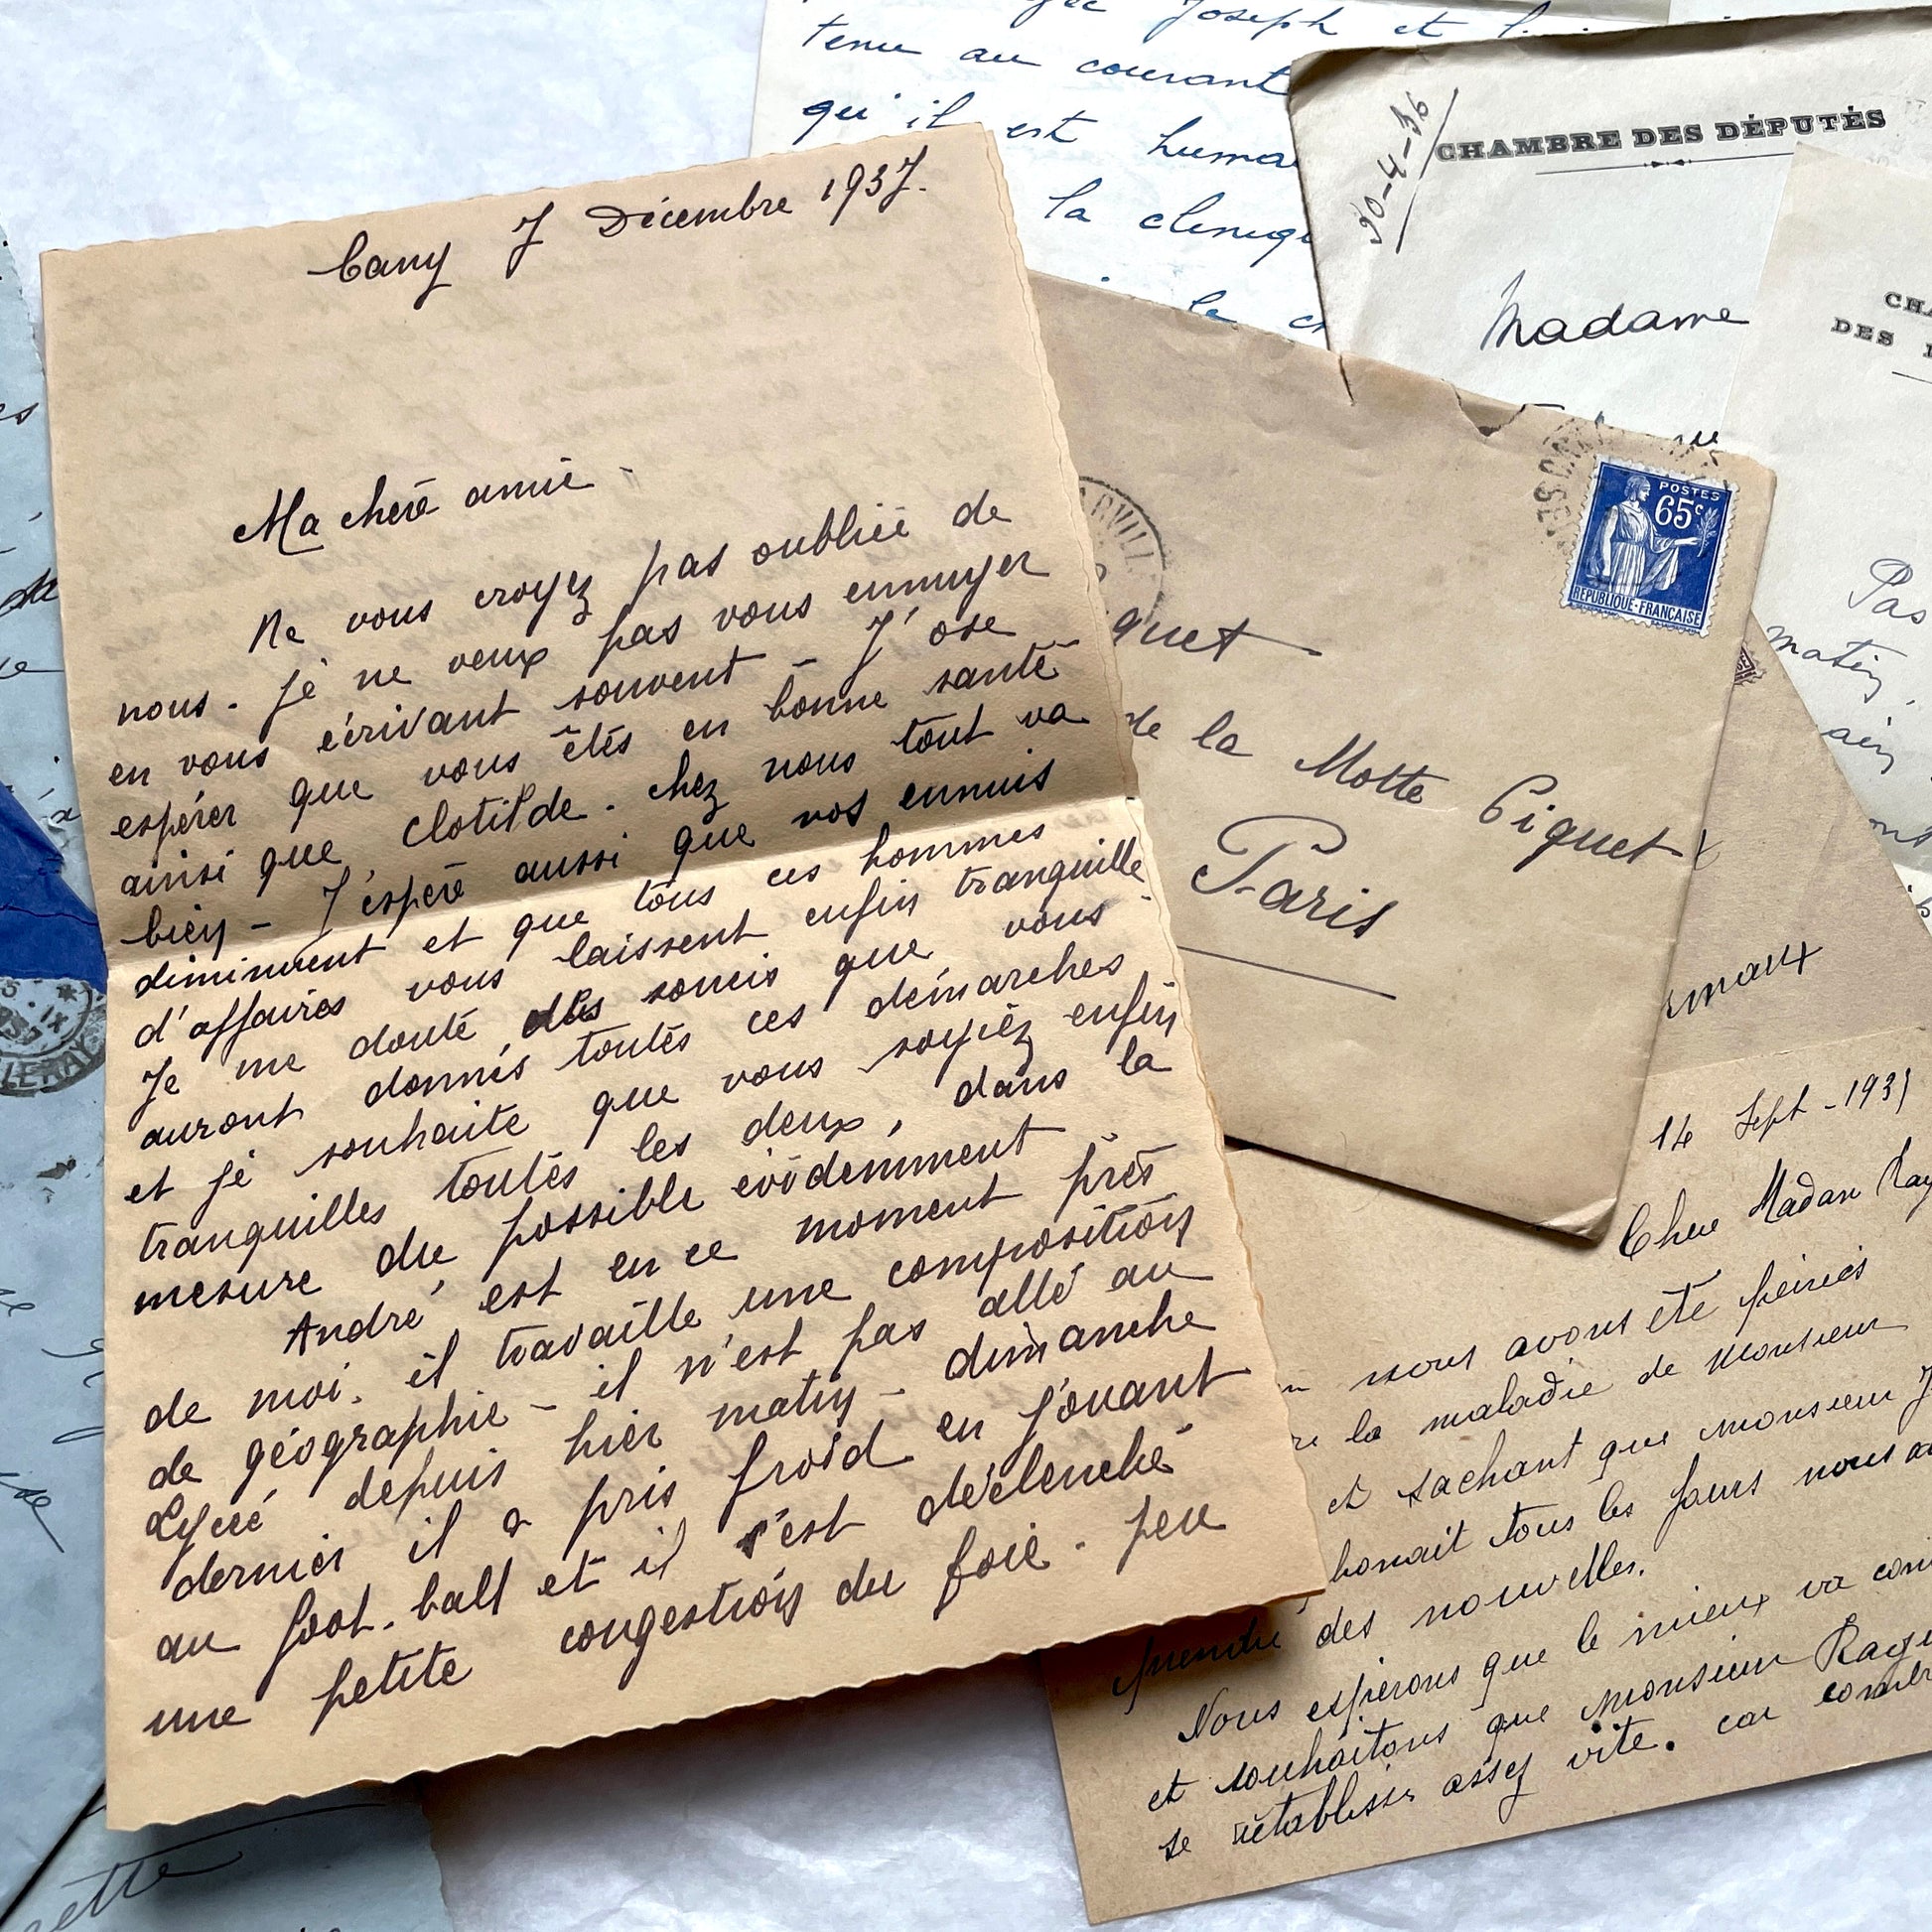 Cany 7 Décembre 1937.
Ma chère amie -
Ne vous croyez pas oubliée de
nous. je ne veux pas vous ennuyer
en vous écrivant souvent - J'ose
espérer que vous êtes en bonne santé
ainsi que Clotilde. chez nous tout va
bien - J'espère aussi que vos ennuis
diminuent et que tous ces hommes
d'affaires vous laissent enfin tranquille
Je me doute des soucis que vous
auront donnés toutes ces démarches
et je souhaite que vous soyiez enfin
tranquilles toutes les deux, dans la
mesure du possible évidemment
André est en ce moment près
de moi. il travaille une composition
de géographie - il n'est pas allé au
Lycée depuis hier matin - dimanche
dernier il a pris froid en jouant
au foot-ball et il s'est déclenché
une petite congestion du foie. peu
Joseph et
tenu au courant
qu'il est huma
la cliniq
le
30-4-36
CHAMBRE DES DÉPUTÉS
Madame
CHA
DES
POSTES
65c
REPUBLIQUE-FRANÇAISE
quet
de la Motte Piquet
Paris
Pas
matin,
14 Sept - 193
Chere Madam Ray
nous avons été peinés
la maladie de Monsieur
et sachant que monsieur J
tous les jours nous
prendre des nouvelles.
Nous espérons que le mieux va con
et souhaitons que Monsieur Ray
se rétablisse assez vite. car
ette